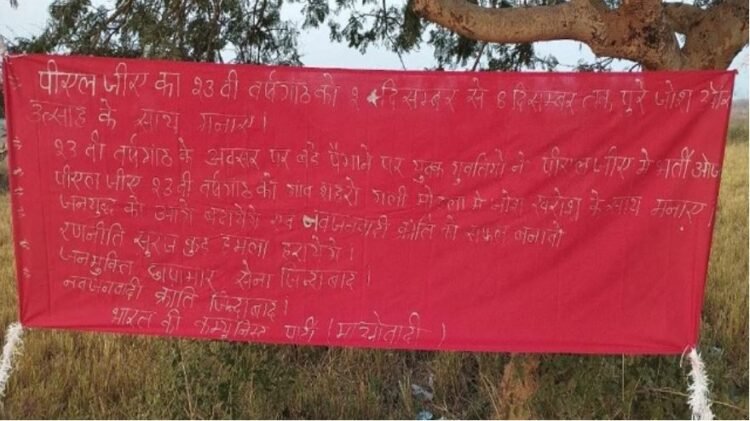 पीएल जीए का २३ वी वर्षगाठ को २ दिसम्बर से 8 दिसम्बर तक पुरे जोश और
उत्साह के साथ मनाए।
२३ वी वर्षगाठ के अवसर पर बडे पैमाने पर युवक युवतियों ने पीएलजीए मे भर्ती
पीएल जीए २३ वी वर्षगाठ को गाव शहरो गली मोहला मे जोश खरोश के साथ मनाए
जनयुद्ध को आगे बढायेगे एव नवजनवादी क्रांति को सफल बनावो
रणनीति सुरज कुड हमला हरायेगे।
जनमुक्ति छापामार सेना जिन्दाबाद।
नवजनवादी क्रांति जिन्दाबाद।
भारत की कम्युनिस्ट पार्टी (माओवादी)